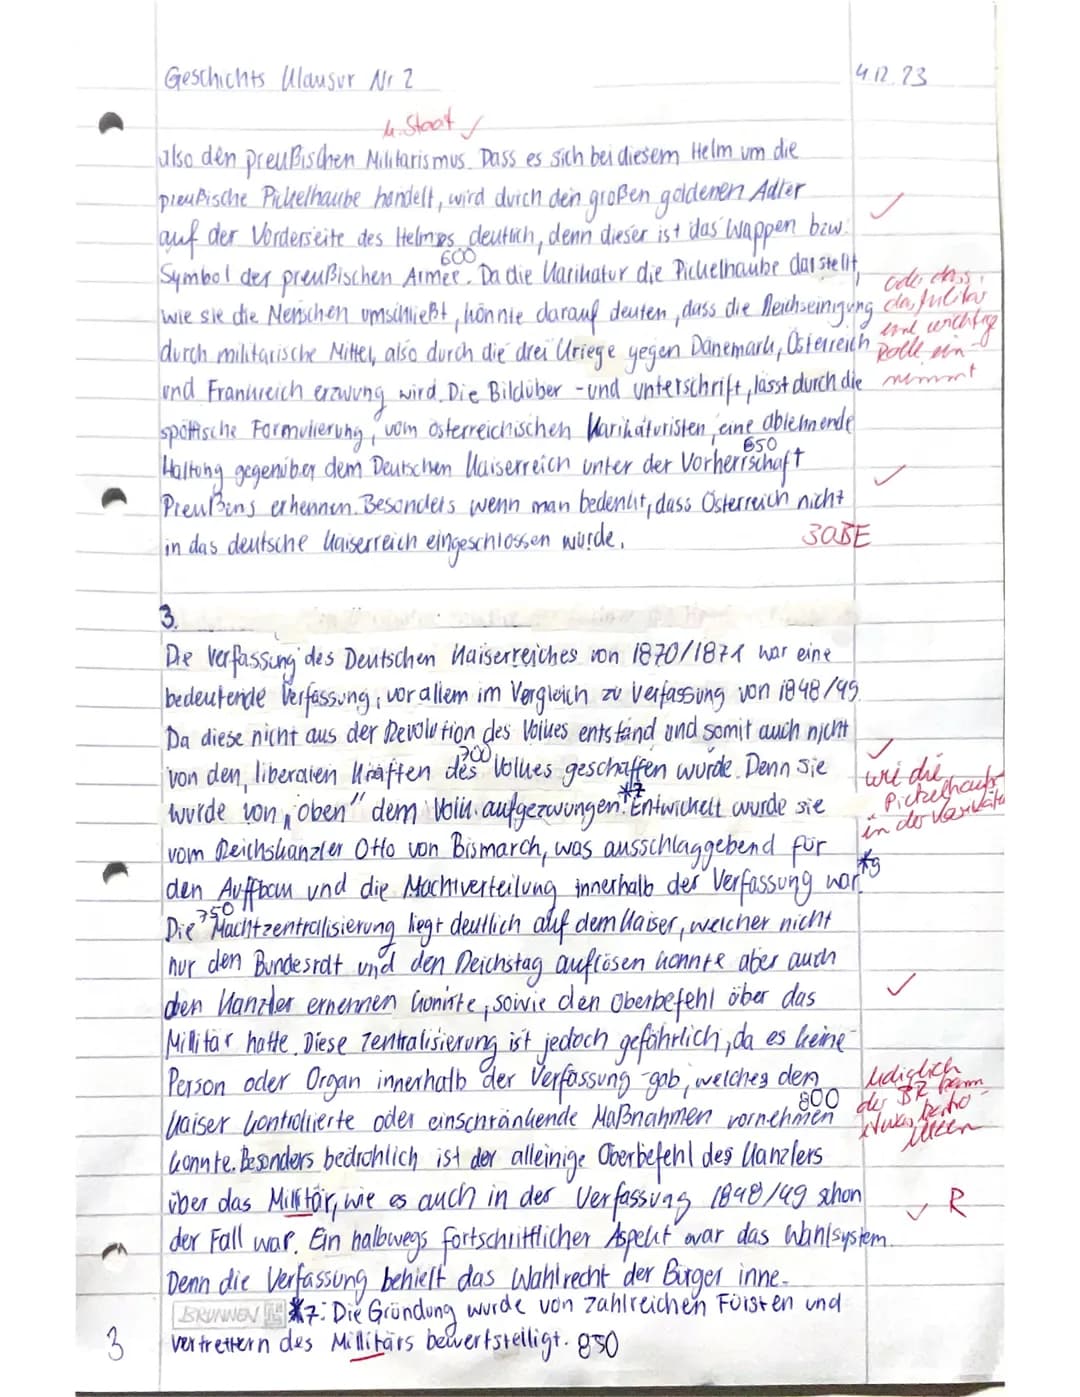 Geschichts Klausur Nr 2
4.12.23
u. Staat ✓
also den preußischen Militarismus. Dass es sich bei diesem Helm um die
preußische Pickelhaube handelt, wird durch den großen goldenen Adler
auf der Vorderseite des Helmes deutlich, denn dieser ist das Wappen bzw.
600
Symbol der preußischen Armee. Da die Karikatur die Pickelhaube darstellt,
oder dass
wie sie die Menschen umschließt, könnte darauf deuten, dass die Reichseinigung
das Militär
eine wichtige
durch militärische Mittel, also durch die drei Kriege gegen Dänemark, Österreich
Rolle ein-
und Frankreich erzwung wird. Die Bildüber -und unterschrift, lässt durch die
nimmt
spöttische Formulierung, vom österreichischen Karikaturisten, eine ablehnende
650
Haltung gegenüber dem Deutschen Kaiserreich unter der Vorherrschaft
Preußens erkennen. Besonders wenn man bedenkt, dass Österreich nicht
in das deutsche Kaiserreich eingeschlossen wurde.
30BE
3.
Die Verfassung des Deutschen Kaiserreiches von 1870/1871 war eine
bedeutende Verfassung, vor allem im Vergleich zu Verfassung von 1848/49.
Da diese nicht aus der Revolution des Volkes entstand und somit auch nicht
700
von den liberalen Kräften des Volkes geschaffen wurde. Denn sie
wie die
Pickelhaube
wurde von „oben" dem Volk aufgezwungen.*7 Entwickelt wurde sie
in der Karikatur
vom Reichskanzler Otto von Bismarch, was ausschlaggebend für
den Auffbau und die Machtverteilung innerhalb der Verfassung war.*9
750
Die Machtzentralisierung liegt deutlich auf dem Kaiser, welcher nicht
nur den Bundesrat und den Reichstag auflösen konnte aber auch
den Kanzler ernennen konnte, sowie den Oberbefehl über das
Millitär hatte. Diese Zentralisierung ist jedoch gefährlich, da es keine
Person oder Organ innerhalb der Verfassung gab, welches den
lediglich
der BR kann
800
Kaiser kontrollierte oder einschränkende Maßnahmen vornehmen
konnte. Besonders bedrohlich ist der alleinige Oberbefehl des Kanzlers
über das Millitär, wie es auch in der Verfassung 1848/49 schon
✓ R
der Fall war. Ein halbwegs fortschrittlicher Aspekt war das Wahlsystem.
Denn die Verfassung behielt das Wahlrecht der Bürger inne.
BRUNNEN *7: Die Gründung wurde von zahlreichen Fürsten und
vertrettern des Millitärs bewertstelligt. 850
3